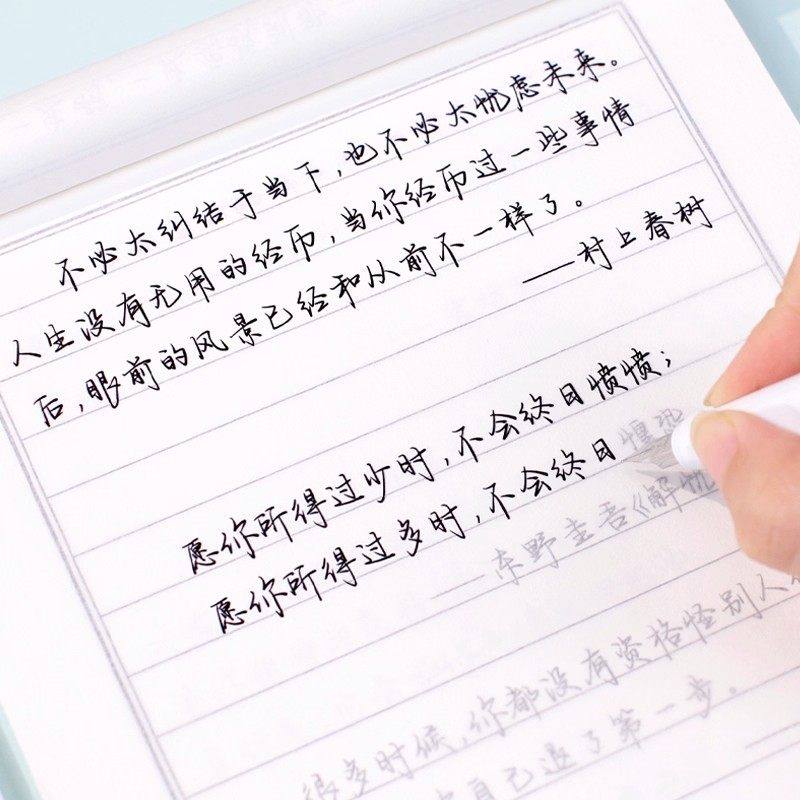 不必太纠结于当下,也不必太忧虑未来。
人生没有无用的经历,当你经历过一些事情
后,眼前的风景已经和从前不一样了。
——村上春树
愿你所得过少时,不会终日愤愤;
愿你所得过多时,不会终日惶恐
——东野圭吾《解忧
很多时候,你都没有资格怪别人
自己退了第一步。